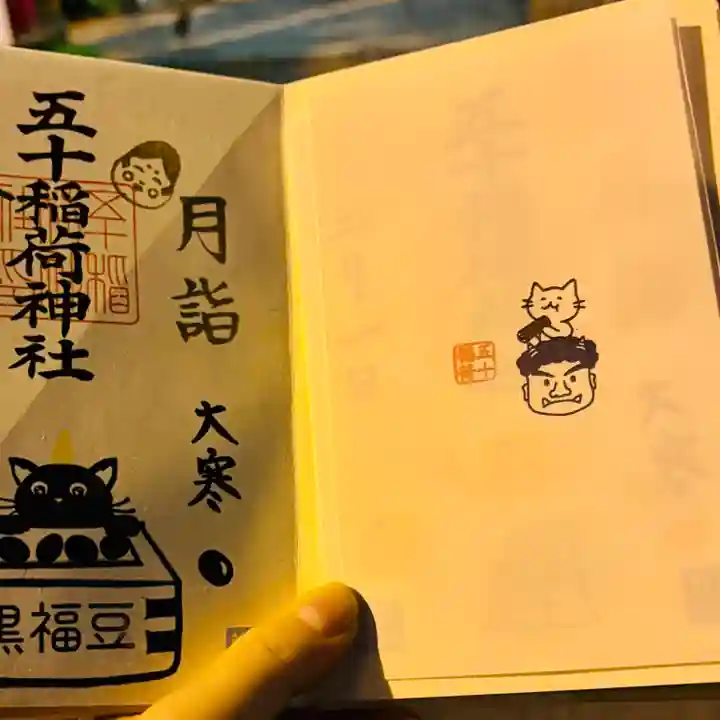 月詣
大寒
五十稲荷神社
黒福豆
五十
稲荷